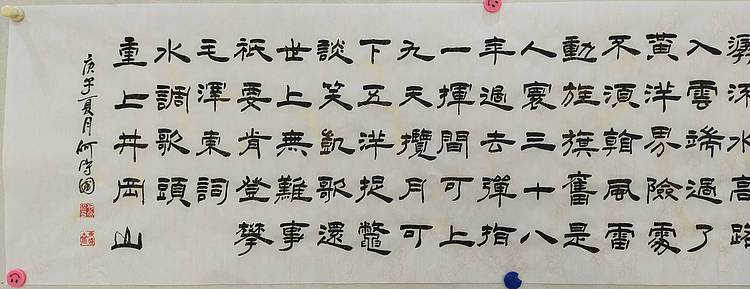 潺流水高路
入雲端過了
黄洋界險處
不須看風雷
動旌旗奮是
人寰三十八
年過去彈指
一揮間可上
九天攬月可
下五洋捉鱉
談笑凱歌還
世上無難事
祇要肯登攀
毛澤東詞
水調歌頭
重上井岡山
庚子夏月何國